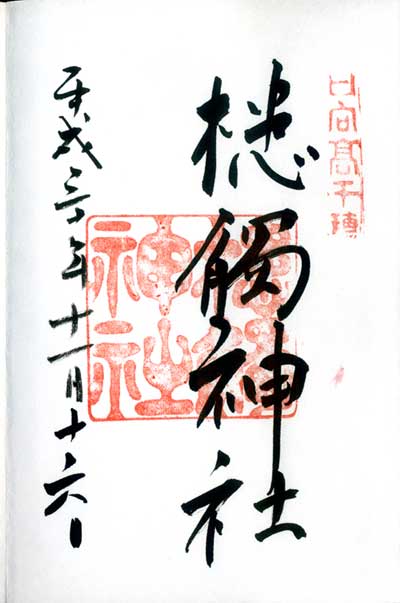 日向髙千穗
槵觸神社
槵觸
神社
平成三十年十一月十六日